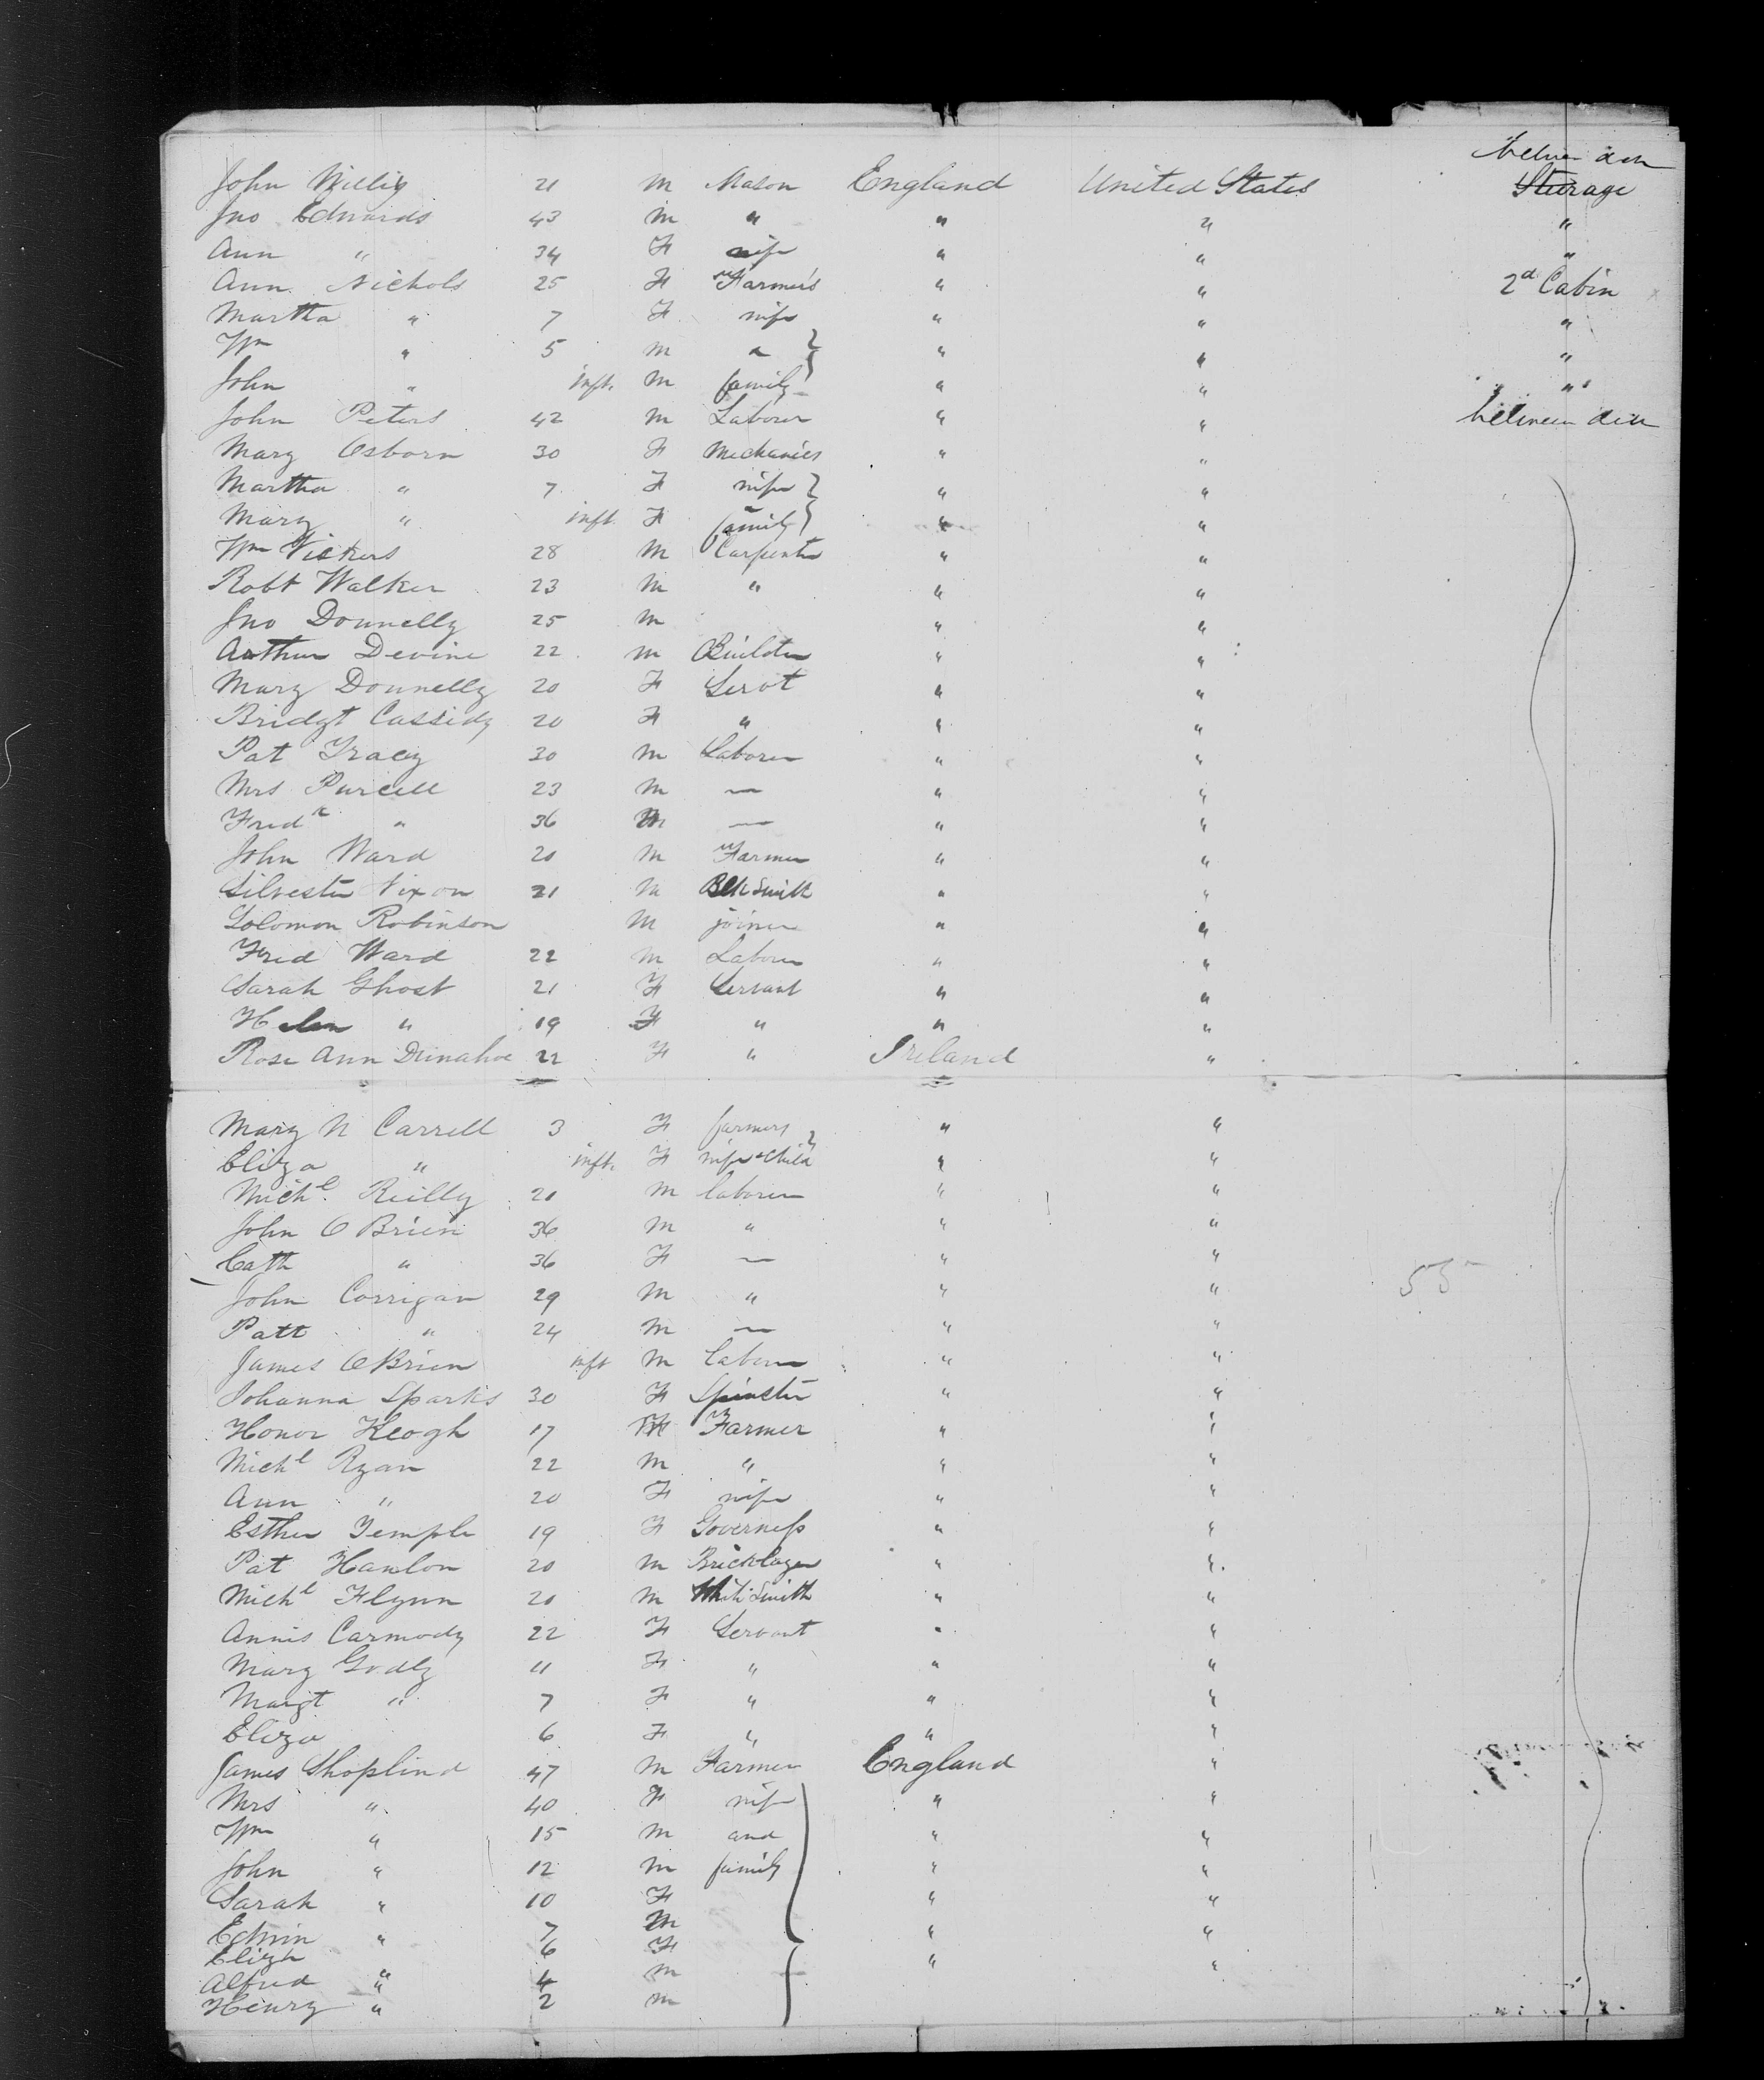 between deck
John Willis 21 M Mason England United States Steerage
Jno Edwards 43 M " " " "
Ann " 34 F wife " " "
Ann Nichols 25 F Farmers " " 2d Cabin
Martha " 7 F wife " " "
Wm " 5 M & " " "
John " inft. M family " " "
John Peters 42 M Laborer " " between deck
Mary Osborn 30 F Mechanics " "
Martha " 7 F wife " "
Mary " inft. F family " "
Wm Vickers 28 M Carpenter " "
Robt Walker 23 M " " "
Jno Donnelly 25 M " "
Arthur Devine 22 M Builder " "
Mary Donnelly 20 F Servt " "
Bridgt Cassidy 20 F " " "
Pat Tracey 30 M Laborer " "
Mrs Purcell 23 M — " "
Fredk " 36 M — " "
John Ward 20 M Farmer " "
Silvester Nixon 21 M Blk Smith " "
Solomon Robinson M joiner " "
Fred Ward 22 M Laborer " "
Sarah Ghost 21 F Servant " "
Helen " 19 F " " "
Rose Ann Dunahoe 22 F " Ireland "
Mary N Carrell 3 F farmers " "
Eliza " inft. F wife & Child " "
Michl. Reilly 20 M laborer " "
John O Brien 36 M " " "
Cath " 36 F — " "
John Corrigan 29 M " " " 55
Patt " 24 M — " "
James OBrien inft M laborer " "
Johanna Sparks 30 F Spinster " "
Honor Keogh 17 F Farmer " "
Michl Ryan 22 M " " "
Ann " 20 F wife " "
Esther Temple 19 F Governess " "
Pat Hanlon 20 M Bricklayer " "
Michl Flynn 20 M White Smith " "
Annis Carmody 22 F Servant " "
Mary Godly 11 F " " "
Margt " 7 F " " "
Eliza 6 F " " "
James Shoplind 47 M Farmer England "
Mrs " 40 F wife " "
Wm " 15 M and " "
John " 12 M family " "
Sarah " 10 F " "
Edwin " 7 M " "
Eliza " 6 F " "
Alfred " 4 M
Henry " 2 M